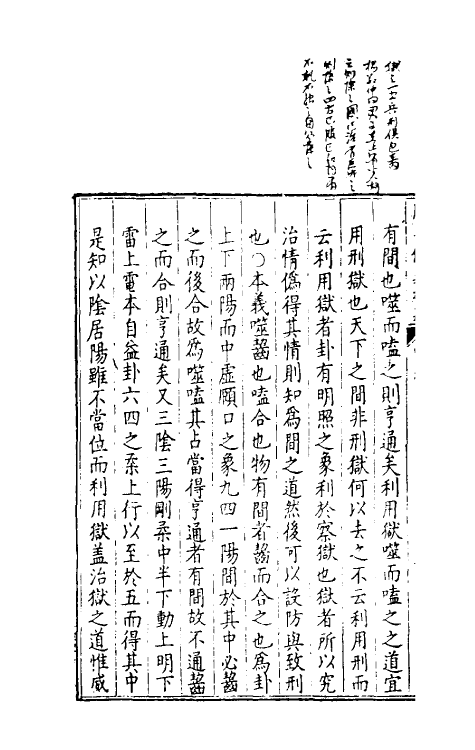 有間也噬而嗑之則亨通矣利用獄噬而嗑之之道宜
用刑獄也天下之間非刑獄何以去之不云利用刑而
云利用獄者卦有明照之象利於察獄也獄者所以究
治情偽得其情則知為間之道然後可以設防與致刑
也○本義噬齧也嗑合也物有間者齧而合之也為卦
上下兩陽而中虛頤口之象九四一陽間於其中必齧
之而後合故為噬嗑其占當得亨通者有間故不通齧
之而合則亨通矣又三陰三陽剛柔中半下動上明下
雷上電本自益卦六四之柔上行以至於五而得其中
是知以陰居陽雖不當位而利用獄盖治獄之道惟威